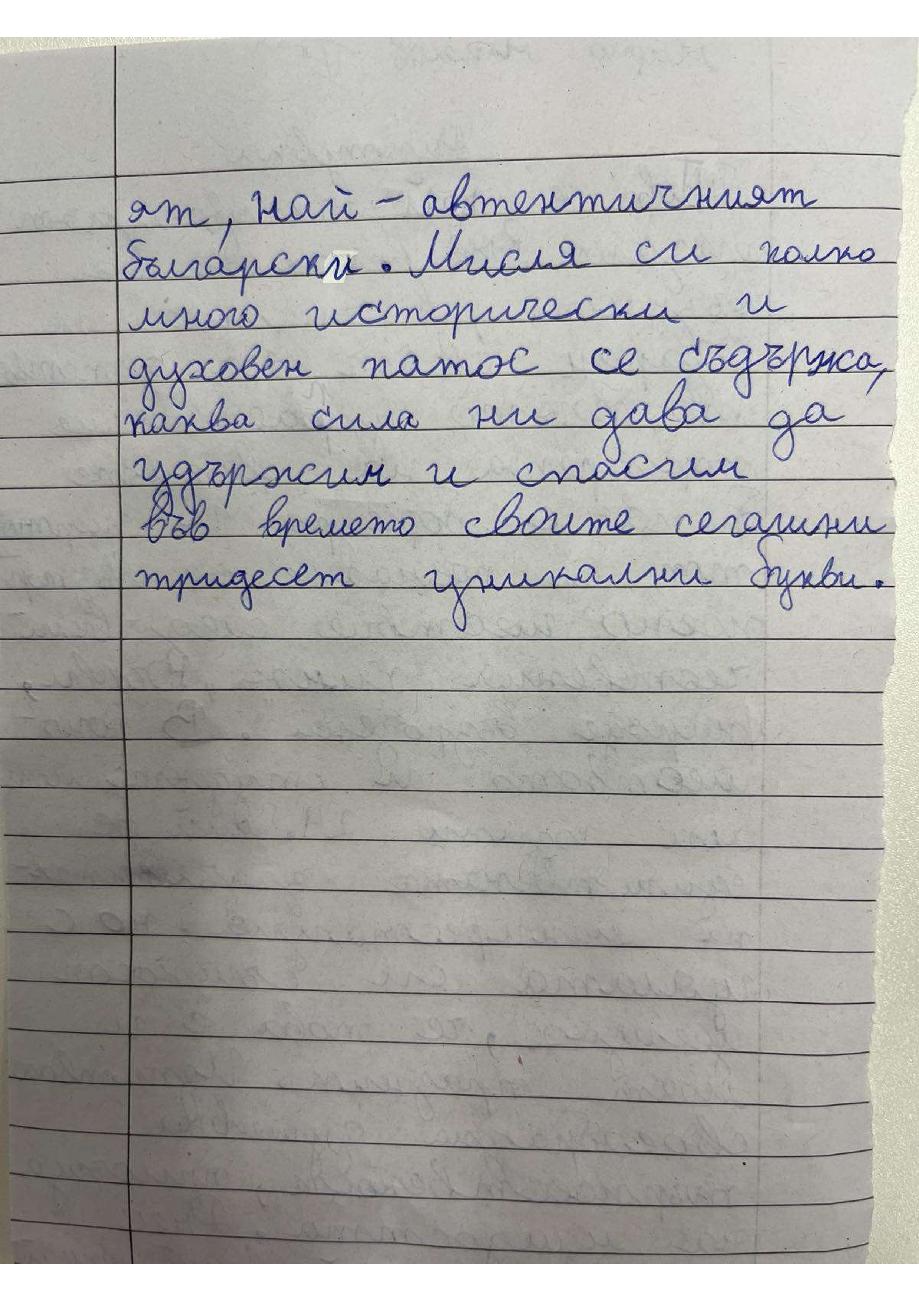 ят, най - автентичният
български. Мисля си колко
много исторически и
духовен патос се съдържа,
каква сила ни дава да
удържим и спасим
във времето своите сегашни
тридесет уникални букви.